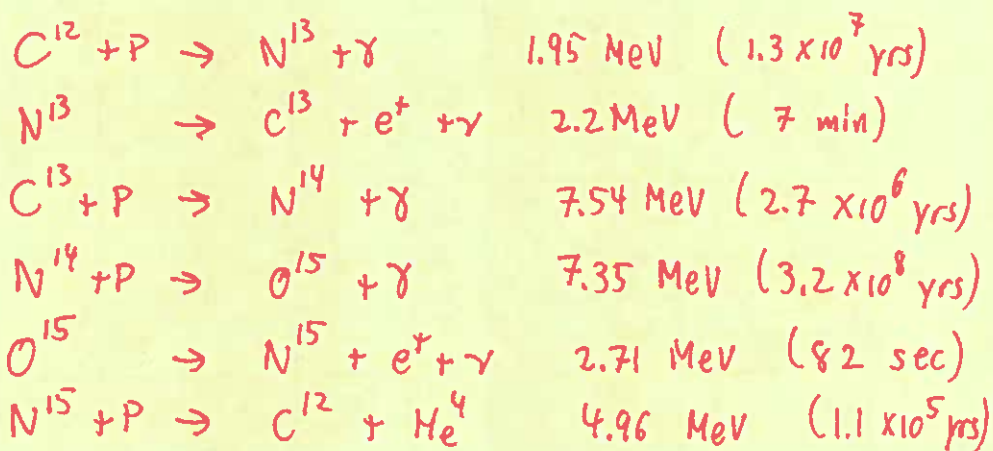 C¹² + P → N¹³ + γ 1.95 MeV (1.3 x 10⁷ yrs)
N¹³ → C¹³ + e⁺ + ν 2.2 MeV (7 min)
C¹³ + P → N¹⁴ + γ 7.54 MeV (2.7 x10⁶ yrs)
N¹⁴ + P → O¹⁵ + γ 7.35 MeV (3.2 x10⁸ yrs)
O¹⁵ → N¹⁵ + e⁺ + ν 2.71 MeV (82 sec)
N¹⁵ + P → C¹² + He⁴ 4.96 MeV (1.1 x10⁵ yrs)